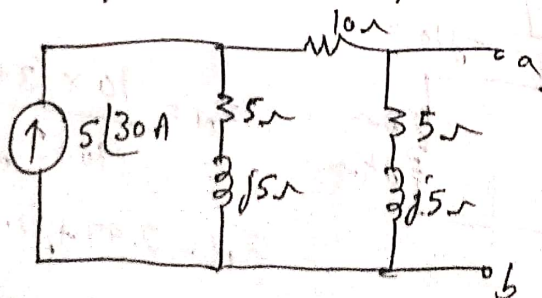 10Ω
a
5∠30 A
5Ω
5Ω
j5Ω
j5Ω
b